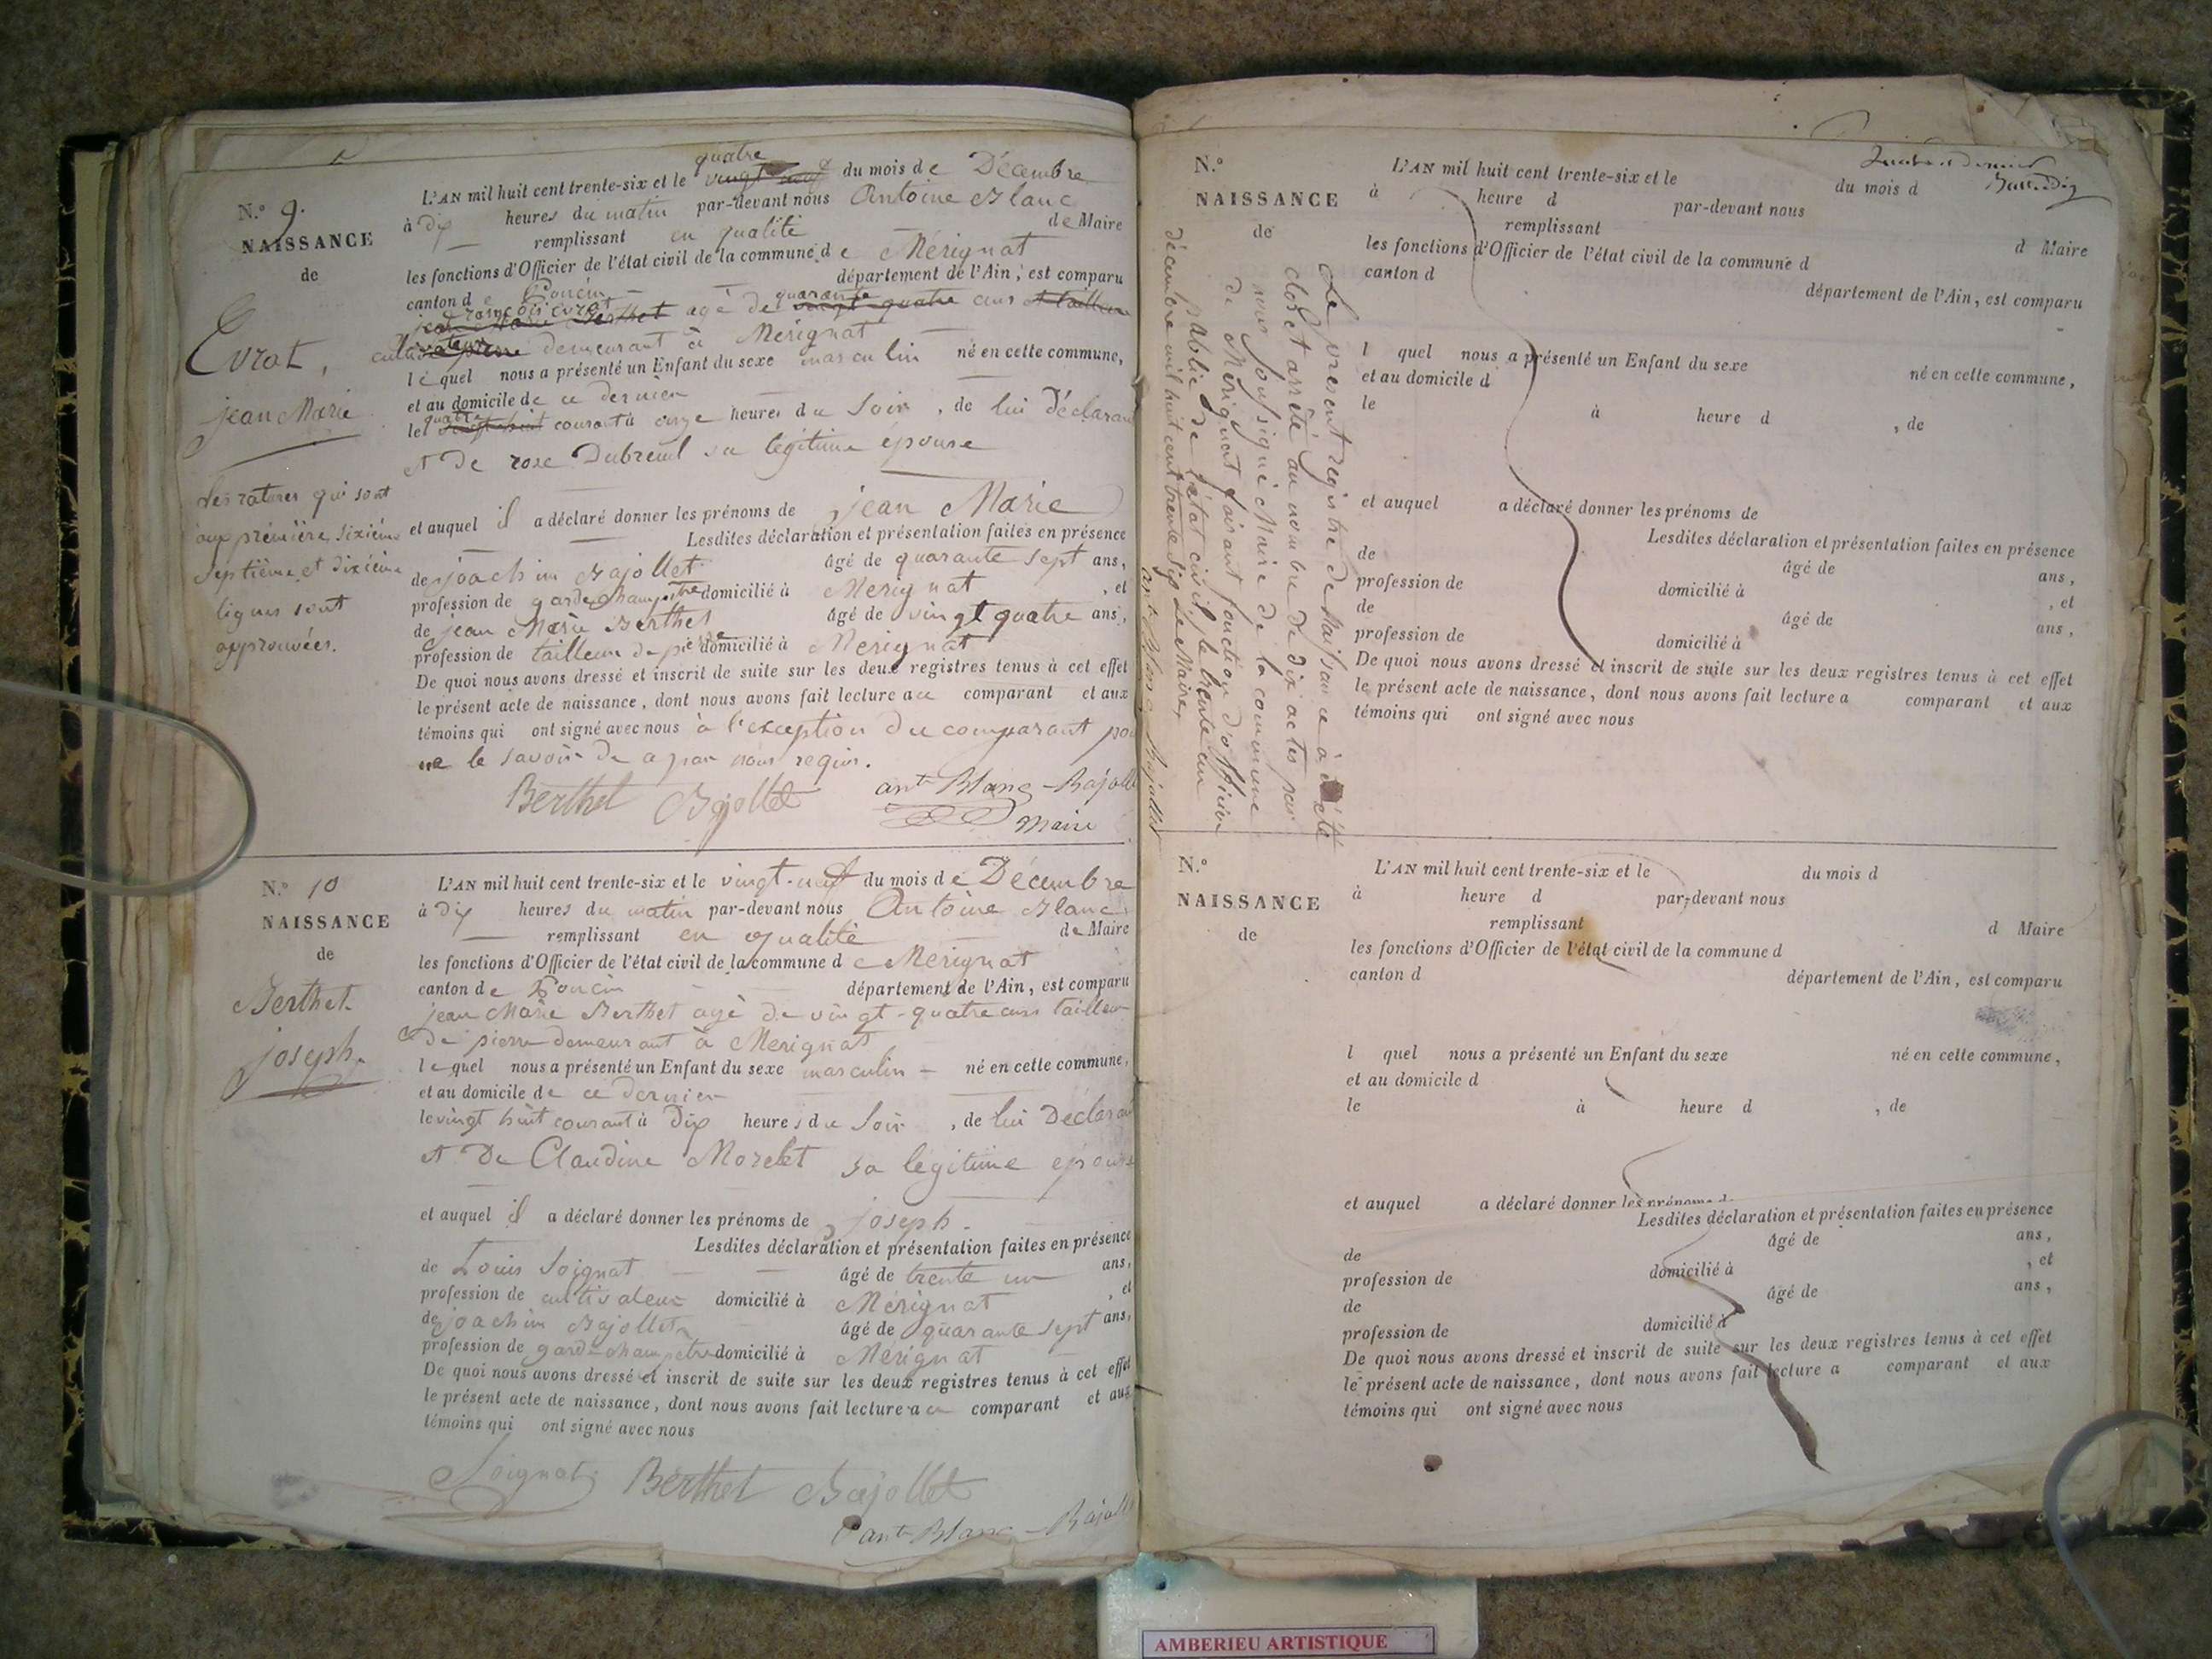 N.° 9.
NAISSANCE
de
Evrat,
jean Marie
les ratures qui sont
aux première, sixième
septième et dixième
lignes sont
approuvées.
quatre
L'AN mil huit cent trente-six et le vingt neuf du mois de Décembre
à dix heures du matin par-devant nous Antoine Blanc
remplissant en qualité de Maire
les fonctions d'Officier de l'état civil de la commune de Mérignat
canton de Poncin département de l'Ain, est comparu
françois Evrat quarante
jean Marie Berthet agé de vingt quatre ans et tailleur
cultivateur demeurant à Mérignat
lequel nous a présenté un Enfant du sexe masculin né en cette commune,
et au domicile de ce dernier
quatre
le vingt huit courant à onze heures du Soir, de lui Déclarant
et De rose Dubreuil sa légitime épouse
et auquel il a déclaré donner les prénoms de jean Marie
Lesdites déclaration et présentation faites en présence
de joachim Bajollet âgé de quarante sept ans,
profession de garde champetre domicilié à Merignat, et
de jean Marie Berthet âgé de vingt quatre ans,
profession de tailleur de pierre domicilié à Merignat
De quoi nous avons dressé et inscrit de suite sur les deux registres tenus à cet effet
le présent acte de naissance, dont nous avons fait lecture au comparant et aux
témoins qui ont signé avec nous à l'exception du comparant pour
ne le savoir de a par nous requis.
Berthet Bajollet ant Blanc-Bajollet
Maire
N.° 10
NAISSANCE
de
Berthet.
joseph.
L'AN mil huit cent trente-six et le vingt-neuf du mois de Décembre
à dix heures du matin par-devant nous Antoine Blanc
remplissant en qualité de Maire
les fonctions d'Officier de l'état civil de la commune de Merignat
canton de Poncin département de l'Ain, est comparu
jean Marie Berthet agé de vingt-quatre ans tailleur
de pierre demeurant à Merignat
lequel nous a présenté un Enfant du sexe masculin né en cette commune,
et au domicile de ce dernier
le vingt huit courant à Dix heures du Soir, de lui Déclarant
et De Claudine Morelet sa légitime epouse
et auquel il a déclaré donner les prénoms de joseph.
Lesdites déclaration et présentation faites en présence
de Louis Soignat âgé de trente un ans,
profession de cultivateur domicilié à Mérignat, et
de joachim Bajollet âgé de quarante sept ans,
profession de garde champetre domicilié à Mérignat
De quoi nous avons dressé et inscrit de suite sur les deux registres tenus à cet effet
le présent acte de naissance, dont nous avons fait lecture au comparant et aux
témoins qui ont signé avec nous
Soignat Berthet Bajollet
ant Blanc-Bajollet
N.°
NAISSANCE
de
L'AN mil huit cent trente-six et le du mois d
à heure d par-devant nous
remplissant d Maire
les fonctions d'Officier de l'état civil de la commune d
canton d département de l'Ain, est comparu
l quel nous a présenté un Enfant du sexe né en cette commune,
et au domicile d
le à heure d , de
et auquel a déclaré donner les prénoms de
Lesdites déclaration et présentation faites en présence
de âgé de ans,
profession de domicilié à , et
de âgé de ans,
profession de domicilié à
De quoi nous avons dressé et inscrit de suite sur les deux registres tenus à cet effet
le présent acte de naissance, dont nous avons fait lecture a comparant et aux
témoins qui ont signé avec nous
Le present registre de Naissance a été
clos et arrêté au nombre de dix actes par
nous soussigné Maire de la commune
de Mérignat faisant fonction d'officier
public de l'état civil, le trente un
décembre mil huit cent trente six Le Maire,
ant Blanc Bajollet
N.°
NAISSANCE
de
L'AN mil huit cent trente-six et le du mois d
à heure d par-devant nous
remplissant d Maire
les fonctions d'Officier de l'état civil de la commune d
canton d département de l'Ain, est comparu
l quel nous a présenté un Enfant du sexe né en cette commune,
et au domicile d
le à heure d , de
et auquel a déclaré donner les prénoms d
Lesdites déclaration et présentation faites en présence
de âgé de ans,
profession de domicilié à , et
de âgé de ans,
profession de domicilié à
De quoi nous avons dressé et inscrit de suite sur les deux registres tenus à cet effet
le présent acte de naissance, dont nous avons fait lecture a comparant et aux
témoins qui ont signé avec nous
AMBERIEU ARTISTIQUE